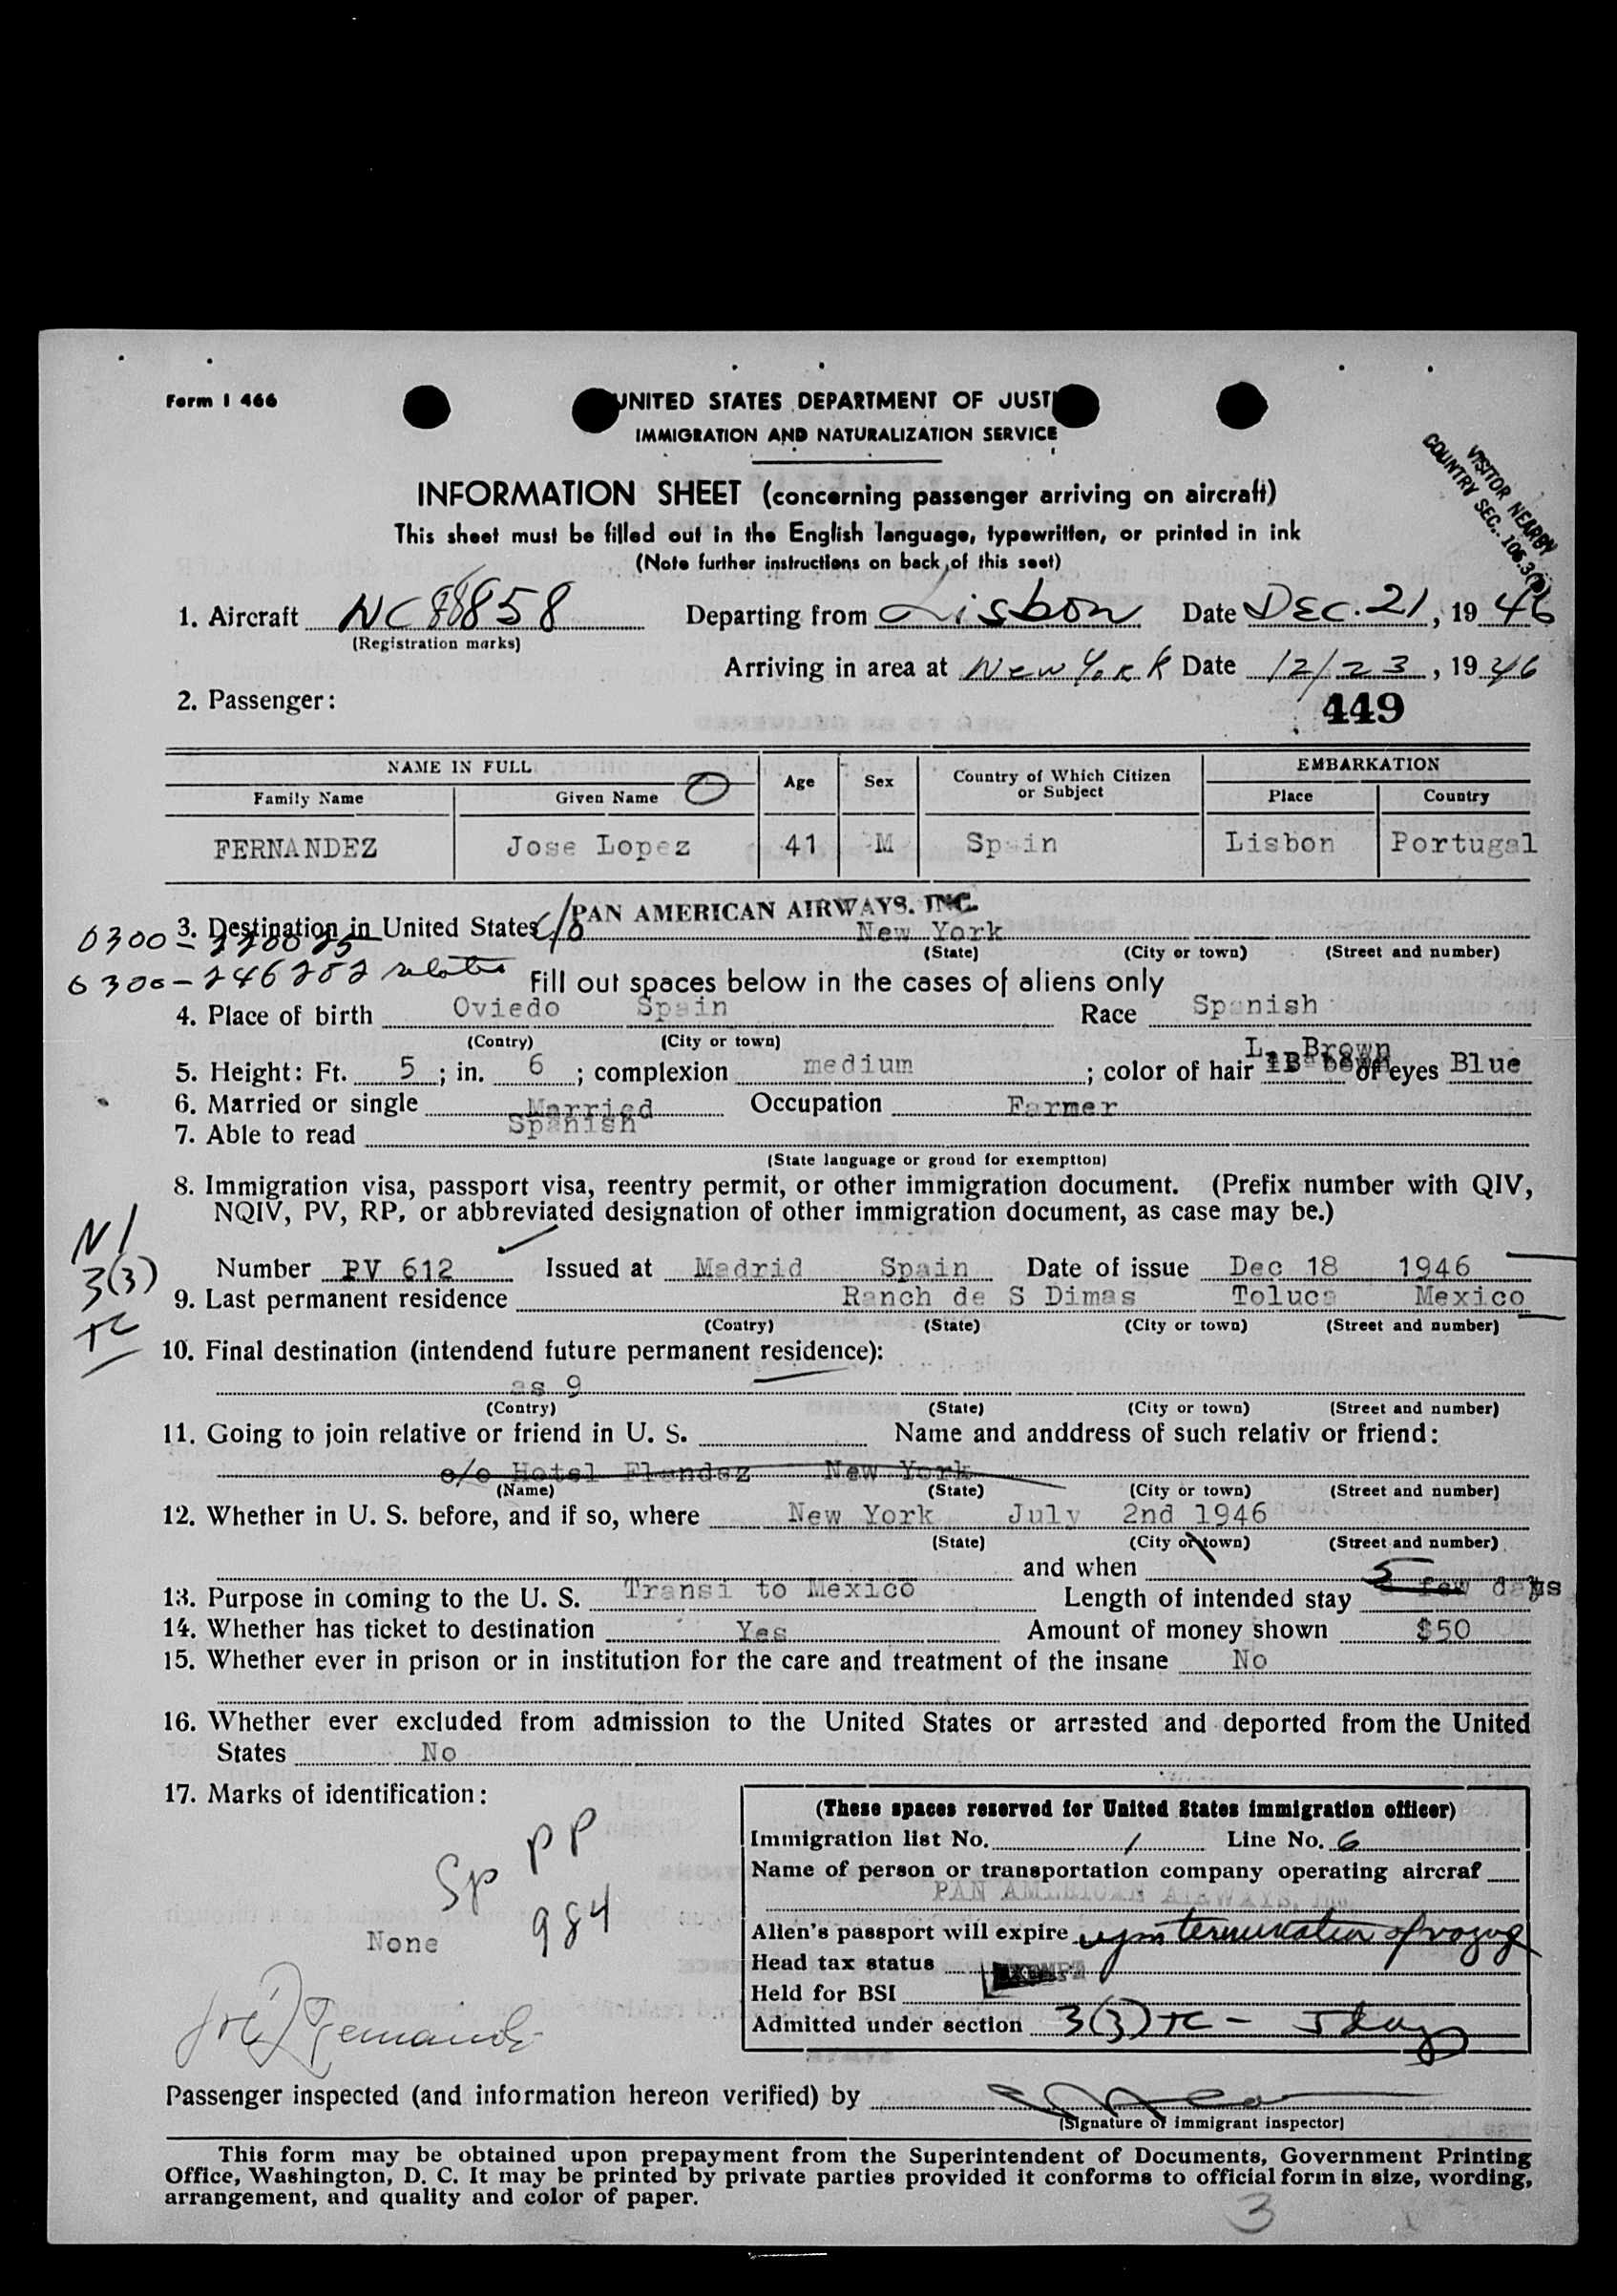 Form I 466
UNITED STATES DEPARTMENT OF JUST
IMMIGRATION AND NATURALIZATION SERVICE
VISITOR NEARBY
COUNTRY SEC. 106.3
INFORMATION SHEET (concerning passenger arriving on aircraft)
This sheet must be filled out in the English language, typewritten, or printed in ink
(Note further instructions on back of this seet)
1. Aircraft NC88858 Departing from Lisbon Date DEC. 21, 1946
(Registration marks)
Arriving in area at New York Date 12/23, 1946
2. Passenger:
449
NAME IN FULL Age Sex Country of Which Citizen or Subject EMBARKATION
Family Name Given Name Place Country
FERNANDEZ Jose Lopez 41 M Spain Lisbon Portugal
3. Destination in United States c/o PAN AMERICAN AIRWAYS. INC.
New York
0300-
(State) (City or town) (Street and number)
0300-246282
Fill out spaces below in the cases of aliens only
4. Place of birth Oviedo Spain Race Spanish
(Contry) (City or town)
5. Height: Ft. 5; in. 6; complexion medium; color of hair L. Brown of eyes Blue
6. Married or single Married Occupation Farmer
7. Able to read Spanish
(State language or grond for exemption)
8. Immigration visa, passport visa, reentry permit, or other immigration document. (Prefix number with QIV,
NQIV, PV, RP, or abbreviated designation of other immigration document, as case may be.)
N1
3(3)
Number PV 612 Issued at Madrid Spain Date of issue Dec 18 1946
9. Last permanent residence Ranch de S Dimas Toluca Mexico
(Contry) (State) (City or town) (Street and number)
10. Final destination (intendend future permanent residence):
as 9
(Contry) (State) (City or town) (Street and number)
11. Going to join relative or friend in U. S. Name and anddress of such relativ or friend:
c/o Hotel Flandez New York
(Name) (State) (City or town) (Street and number)
12. Whether in U. S. before, and if so, where New York July 2nd 1946
(State) (City or town) (Street and number)
and when
13. Purpose in coming to the U. S. Transi to Mexico Length of intended stay 5 few days
14. Whether has ticket to destination Yes Amount of money shown $50
15. Whether ever in prison or in institution for the care and treatment of the insane No
16. Whether ever excluded from admission to the United States or arrested and deported from the United
States No
17. Marks of identification:
Sp PP
984
None
(These spaces reserved for United States immigration officer)
Immigration list No. 1 Line No. 6
Name of person or transportation company operating aircraf
PAN AMERICAN AIRWAYS, Inc.
Alien's passport will expire upon termination of voyag
Head tax status EXEMPT
Held for BSI
Admitted under section 3(3) TC - 5 days
Passenger inspected (and information hereon verified) by
(Signature of immigrant inspector)
This form may be obtained upon prepayment from the Superintendent of Documents, Government Printing
Office, Washington, D. C. It may be printed by private parties provided it conforms to official form in size, wording,
arrangement, and quality and color of paper.
3